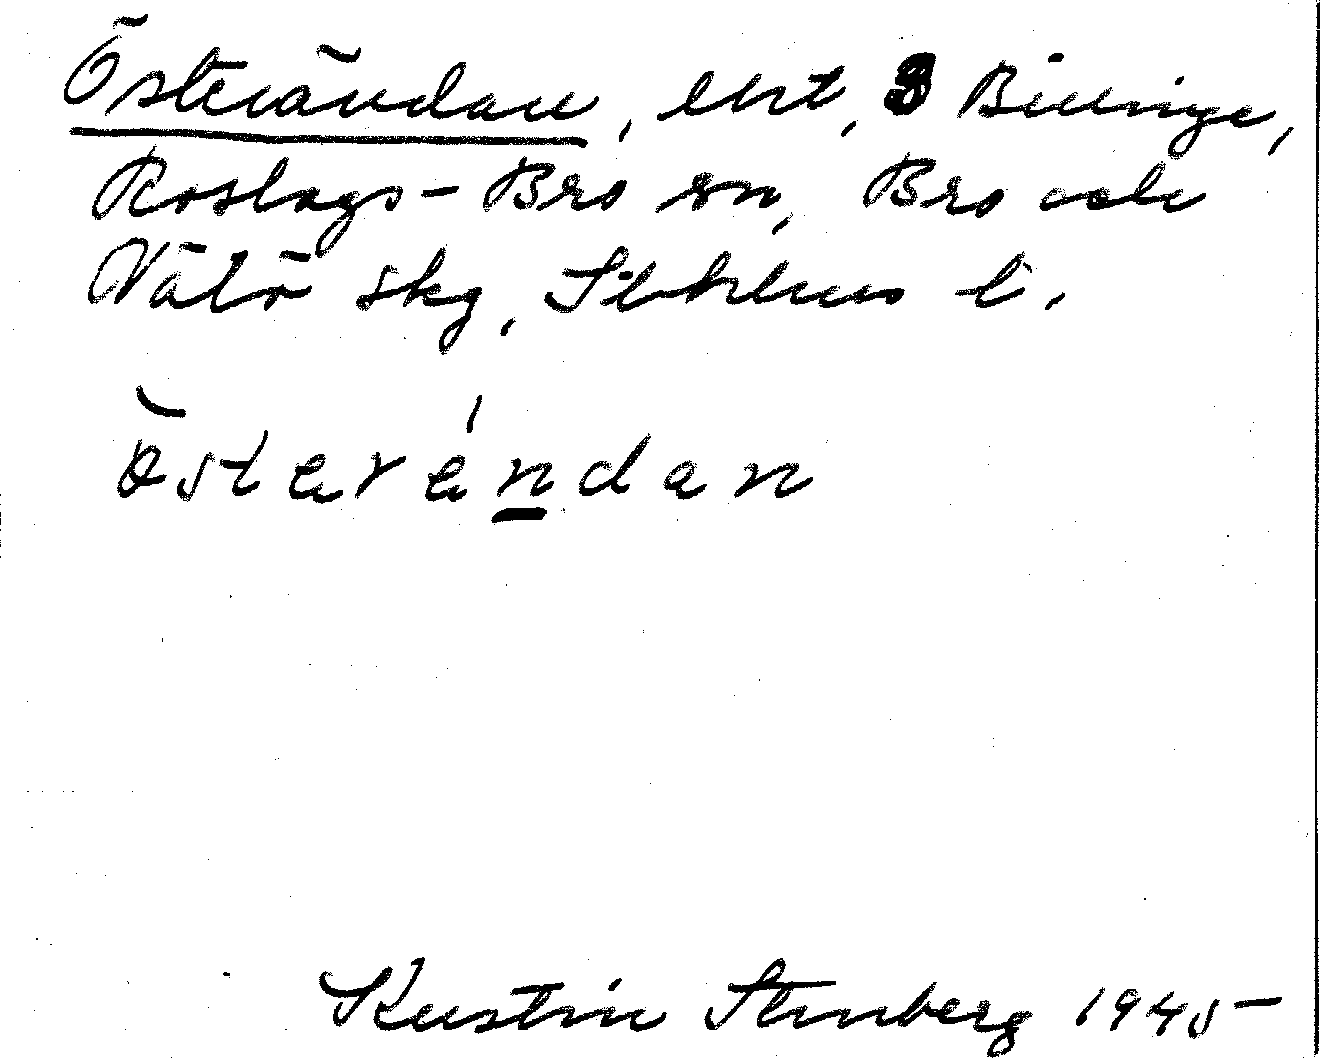 Österändan, ert, 3 Billinge,
Roslags-Bro sn, Bro och
Vätö skg, Sthlms l.
Österéndan
Kerstin Stenberg 1945